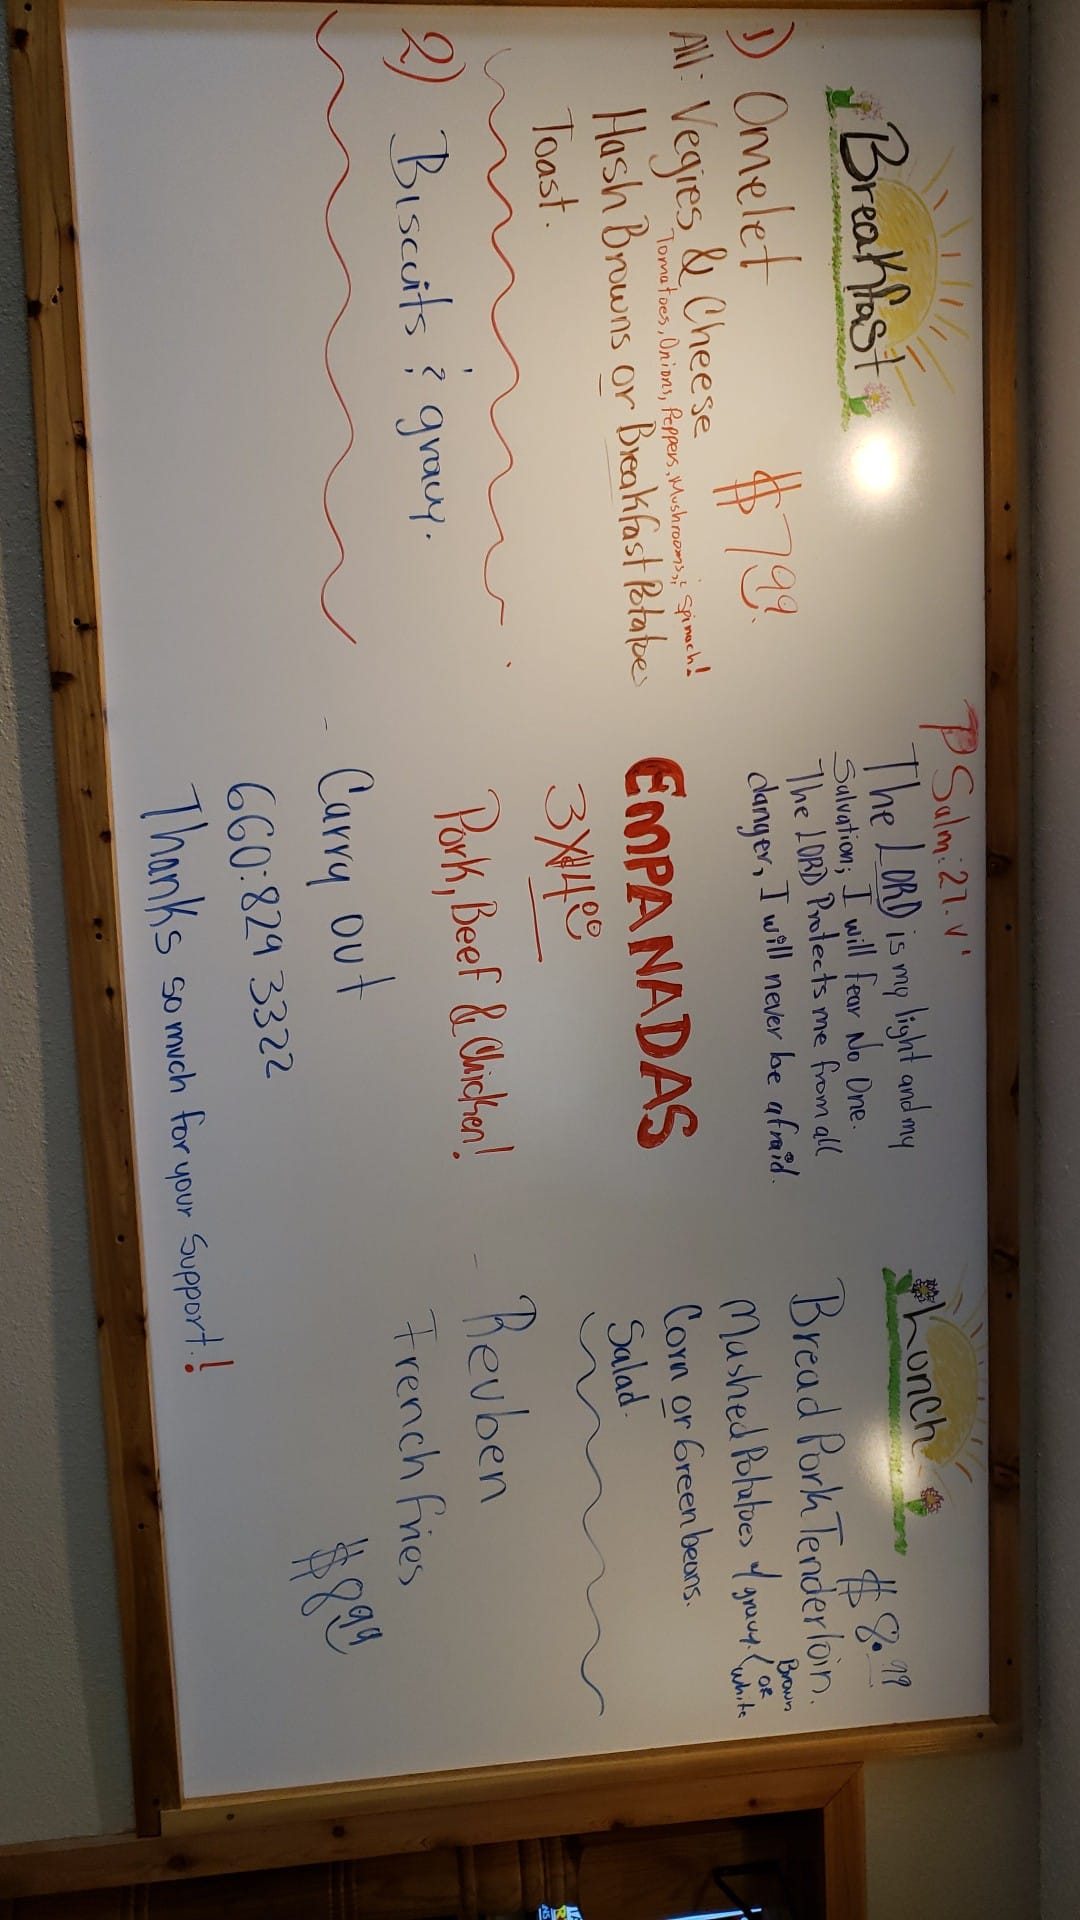 Breakfast
1) Omelet $7 99
All: Vegies & Cheese
Tomatoes, Onions, Peppers, Mushrooms, & Spinach!
Hash Browns or Breakfast Potatoes
Toast.
2) Biscuits & gravy.
PSalm: 27. V1
The LORD is my light and my
Salvation; I will fear No One.
The LORD Protects me from all
danger, I will never be afraid.
EMPANADAS
3X$4 00
Pork, Beef & Chicken!
- Carry out
660:829 3322
Thanks so much for your Support!
Lunch
$8.99
Bread Pork Tenderloin.
Mashed Potatoes w/ gravy. (Brown OR White
Corn or Green beans.
Salad.
- Reuben
French fries
$8 99